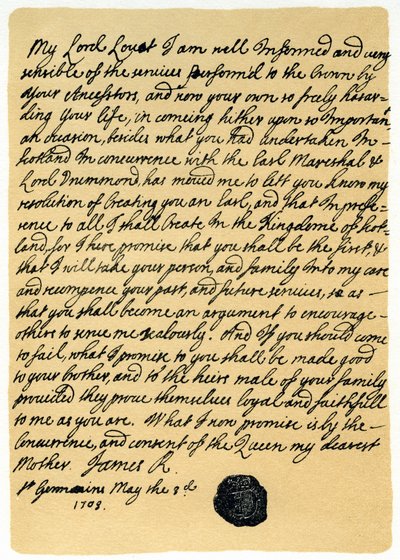 My Lord Lovat I am well Informed and very
sensible of the services performd to the Crown by
your Ancestors, and now your own so freely hasar-
ding your life, in comeing hither upon so Important
an occasion, besides what you had undertaken In
Scotland In concurrence with the Earl Mareshal &
Lord Drummond, has moved me to lett you know my
resolution of Creating you an Earl, and that In prefe-
rence to all I shall Create In the Kingdome of Scot-
land, for I here promise that you shall be the first, &
that I will take your person, and family Into my care
and recompence your past, and future services, so as
that you shall become an argument to encourage
others to serve me zealously. And If you should come
to fail, what I promise to you shall be made good
to your brother, and to the heirs male of your family
provided they prove themselves loyal and faithfull
to me as you are. What I now promise is by the
Concurrence, and consent of the Queen my dearest
Mother. James R.
St Germains May the 3d
1703.